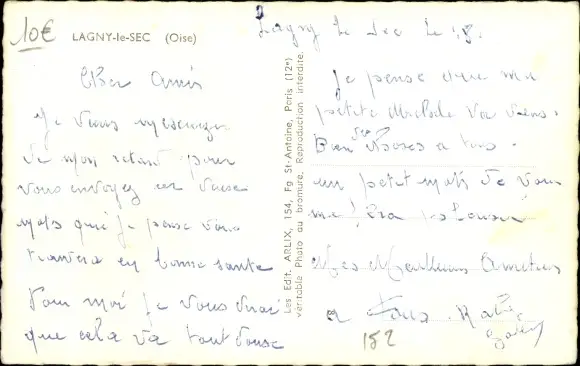 10€
LAGNY-le-SEC (Oise)
Cher Amis
Je vous
de mon retard pour
vous envoyez ces deux
mots que je pense vous
trouvera en bonne sante
Pour moi je vous dirai
que cela va tout douse
Les Edit. ARLIX, 154, Fg St-Antoine, Paris (12e)
véritable Photo au bromure. Reproduction interdite.
Lagny le Sec le 18.
Je pense que ma
petite va
Bien des Choses a tous.
un petit mots de vous
me fera
Mes Meilleurs Amities
a tous.
152